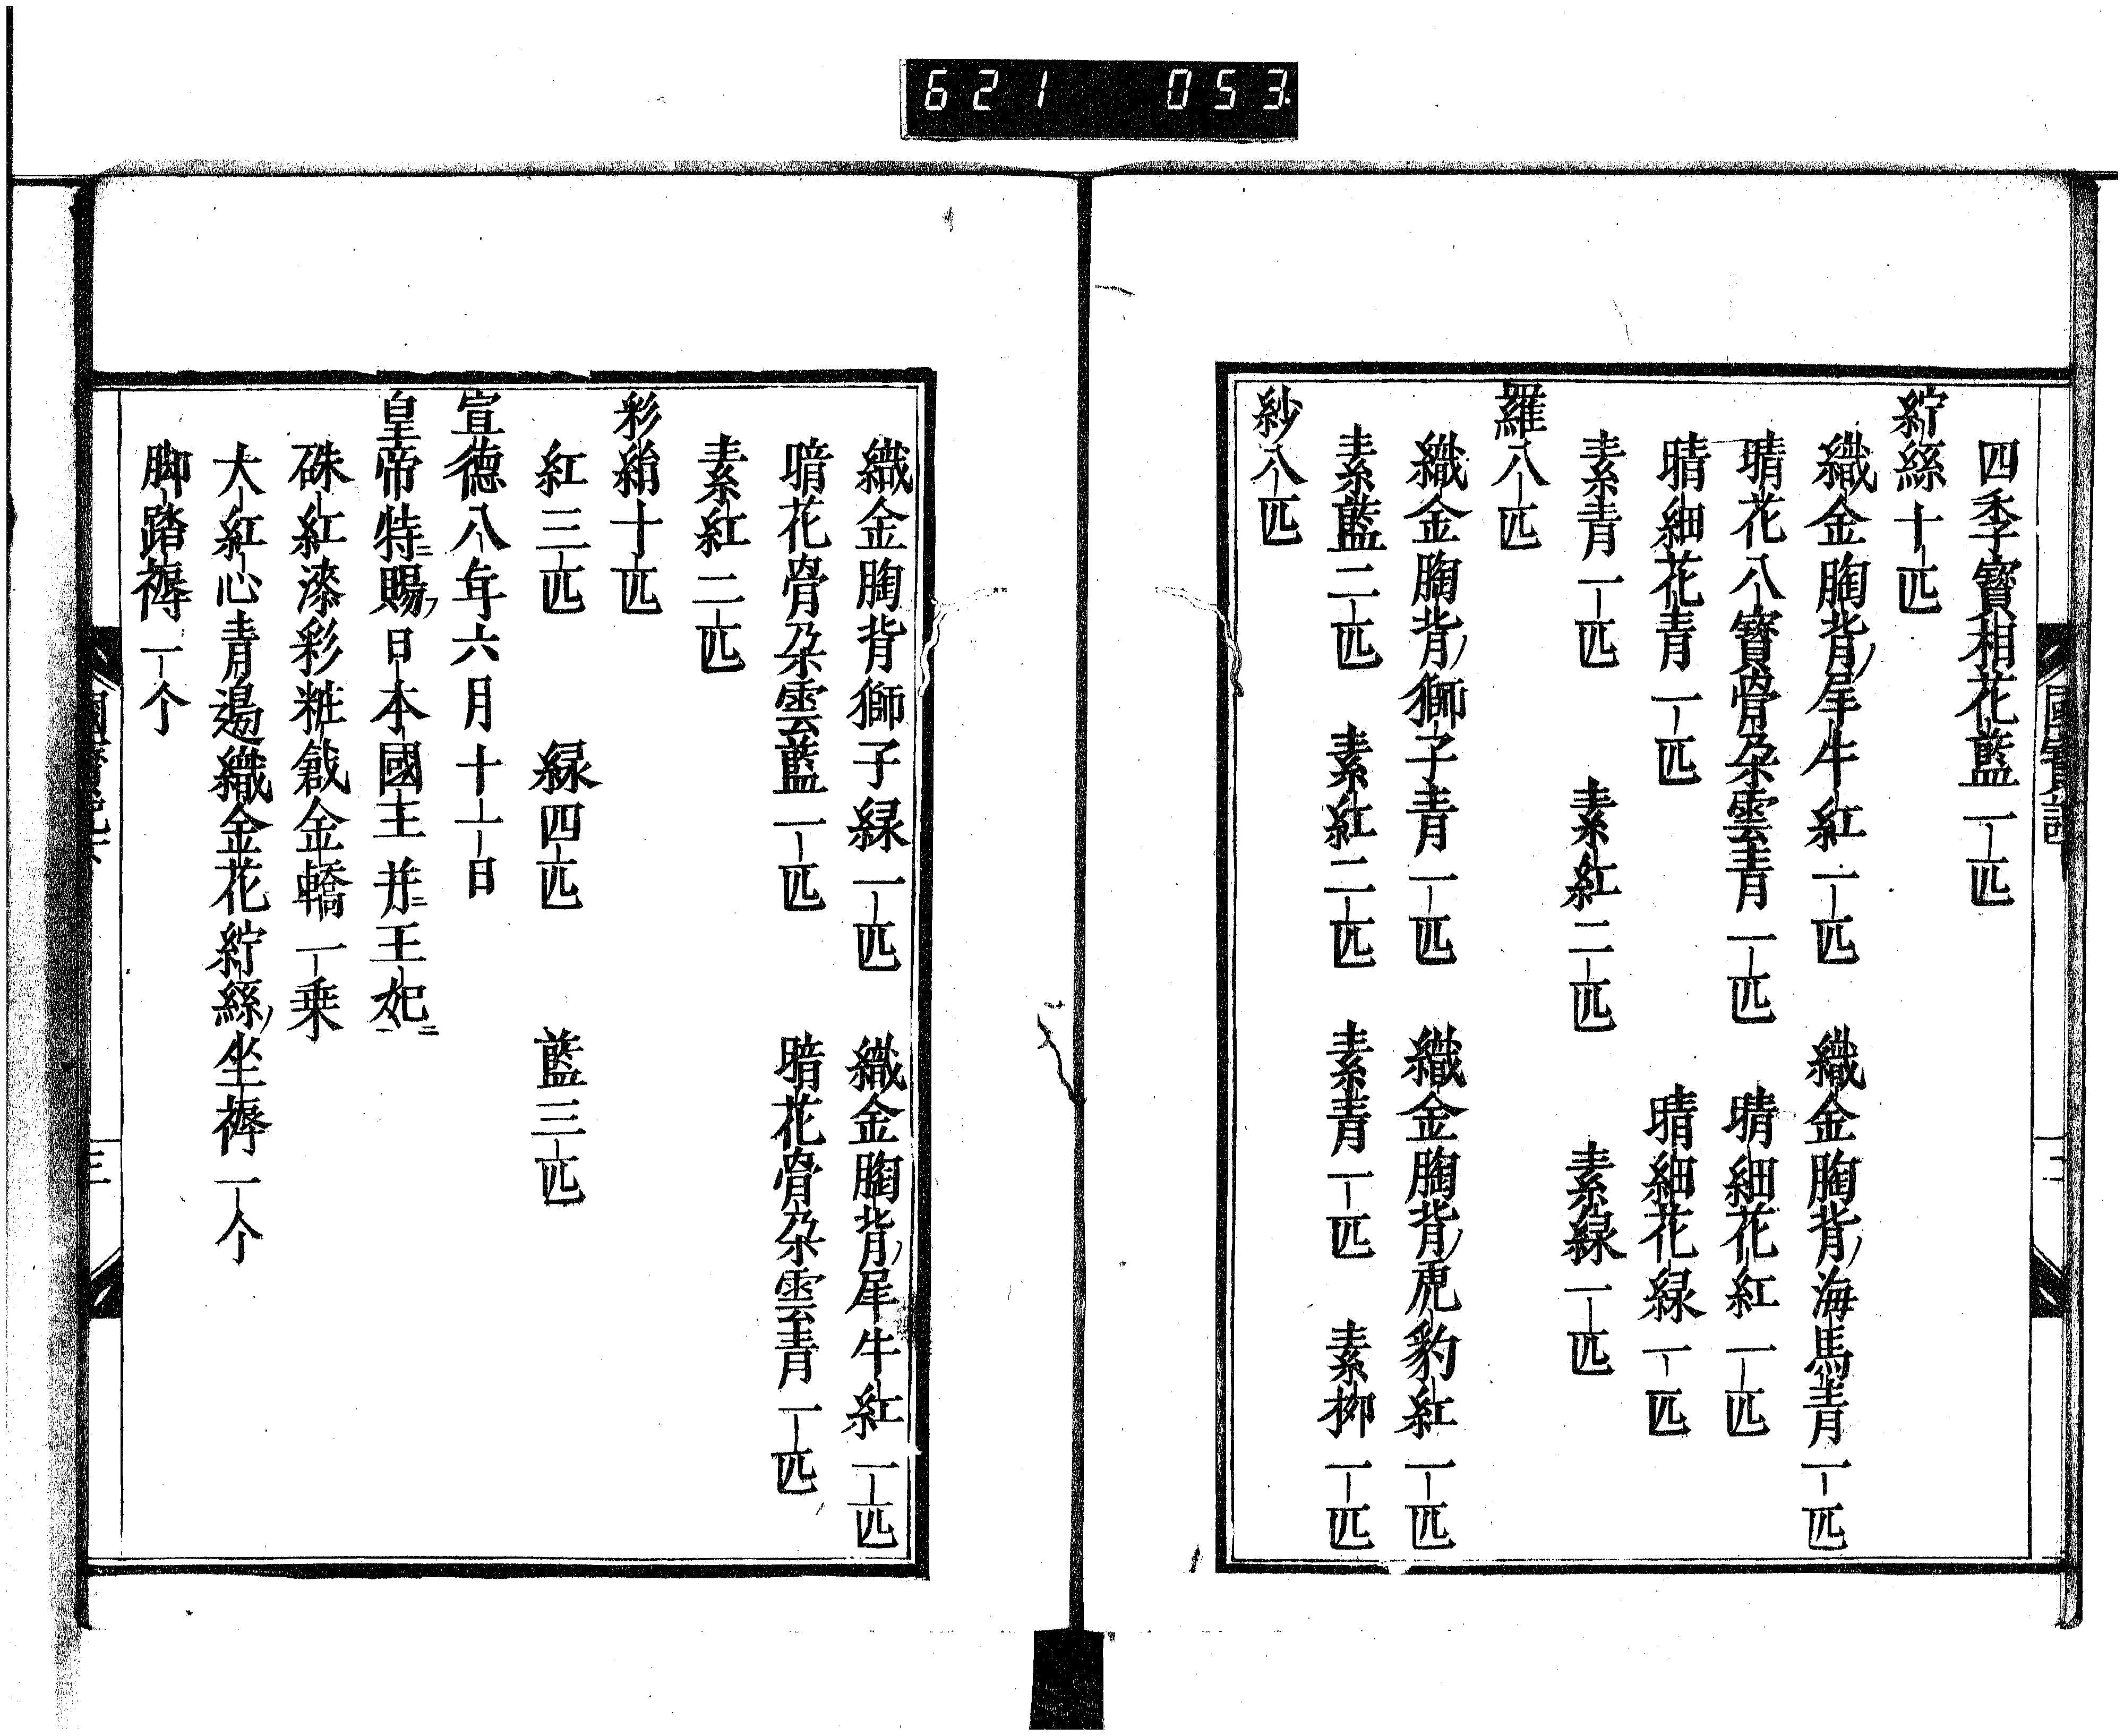 621 053.
四季寳相花藍一匹
紵絲十匹
織金胸背犀牛紅一匹 織金胸背海馬青一匹
晴花八寳骨朶雲青一匹 晴細花紅一匹
晴細花青一匹 晴細花緑一匹
素青一匹 素紅二匹 素緑一匹
羅八匹
織金胸背獅子青一匹 織金胸背虎豹紅一匹
素藍二匹 素紅二匹 素青一匹 素柳一匹
紗八匹
織金胸背獅子緑一匹 織金胸背犀牛紅一匹
暗花骨朶雲藍一匹 暗花骨朶雲青一匹
素紅二匹
彩絹十匹
紅三匹 緑四匹 藍三匹
宣德八年六月十一日
皇帝特賜日本國王并王妃
硃紅漆彩粧戧金轎一乗
大紅心青邉織金花紵絲坐褥一个
脚踏褥一个